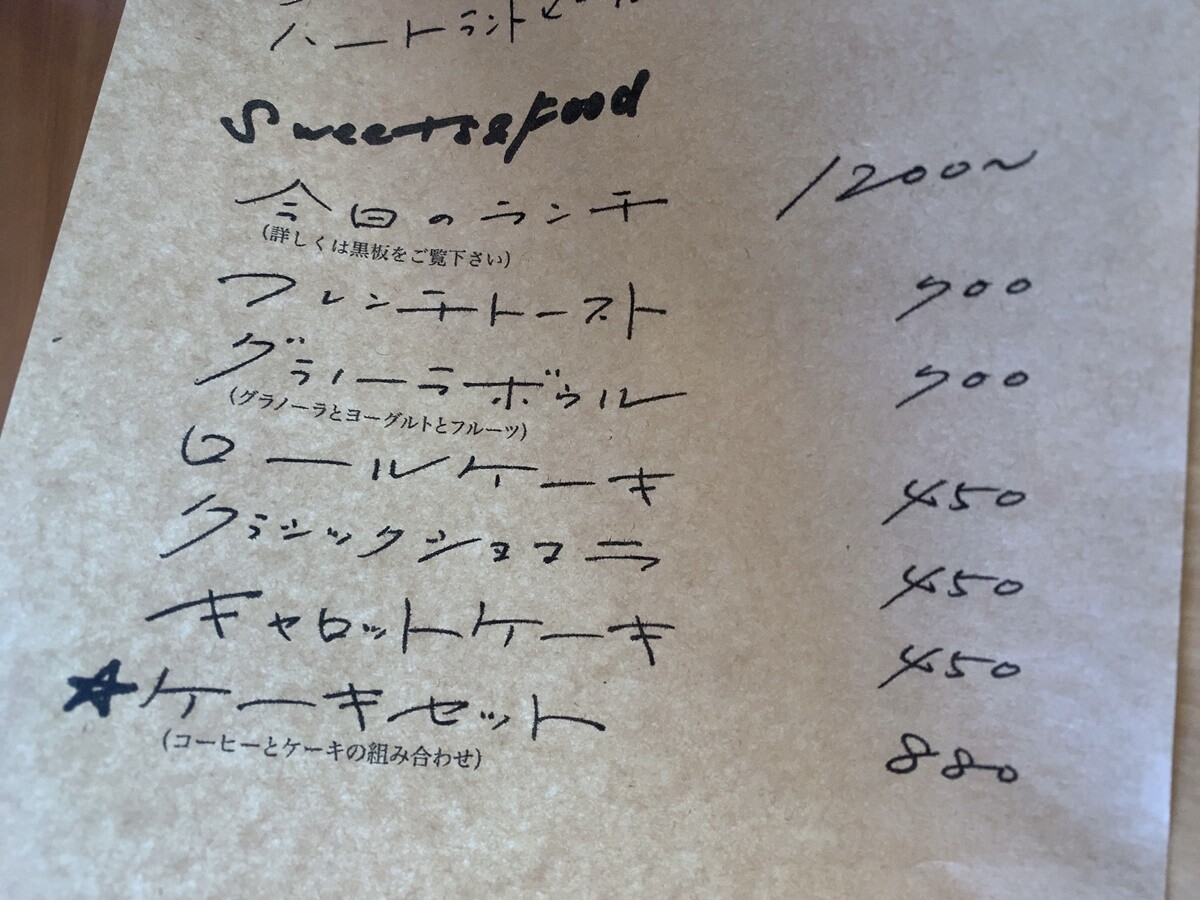 ハートランドビール
Sweets&Food
今日のランチ 1200~
(詳しくは黒板をご覧下さい)
フレンチトースト 700
グラノーラボウル 700
(グラノーラとヨーグルトとフルーツ)
ロールケーキ 450
クラシックショコラ 450
キャロットケーキ 450
★ケーキセット 880
(コーヒーとケーキの組み合わせ)